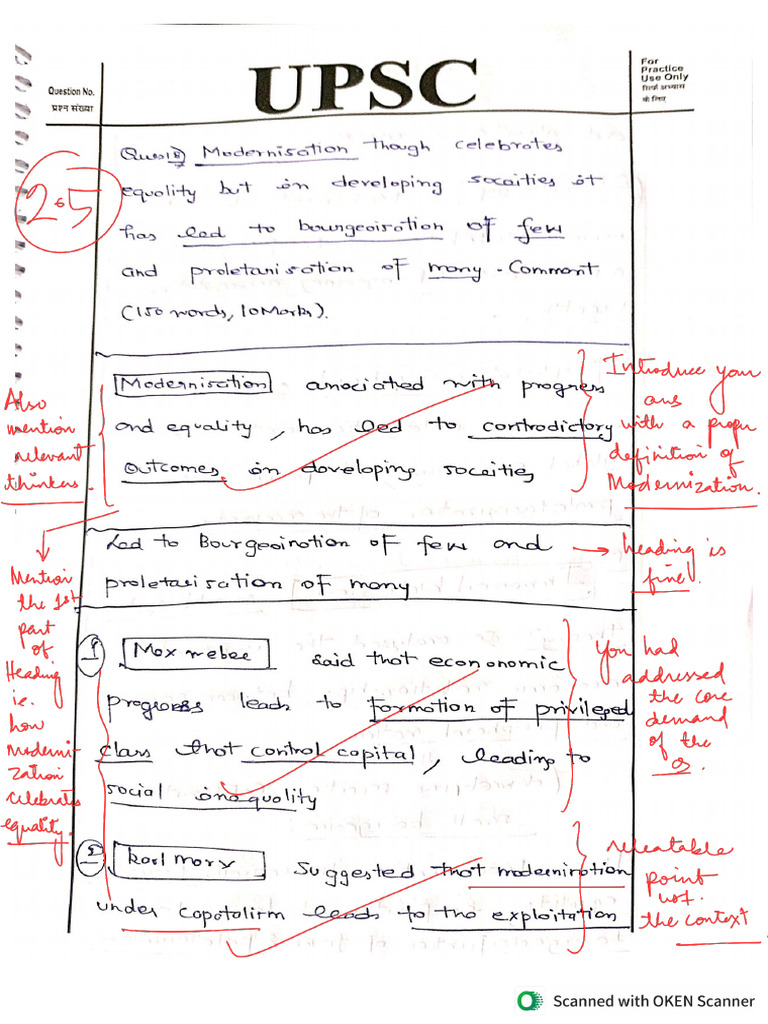 Question No.
प्रश्न संख्या
UPSC
For
Practice
Use Only
सिर्फ अभ्यास
के लिए
2.5
Ques18) Modernisation though celebrates
equality but in developing socaities it
has led to bourgeoisation of few
and proletarisation of many - Comment
(150 words, 10 Marks).
Modernisation associated with progress
and equality, has led to controdictory
outcomes in developing socaities
Introduce your
ans
with a proper
definition of
Modernization.
Also
mention
relevant
thinkers.
Led to Bourgeoisation of few and
proletarisation of many
→ heading is
fine.
Mention
the 1st
part
of
Heading
ie.
how
Moderni-
zation
celebrates
equality.
1 Max weber said that econonomic
progress leads to formation of privileged
class that control capital, leading to
social inequality
You had
addressed
the core
demand
of the
Q.
2 Karl marx suggested that modernisation
under capatalism leads to the exploitation
releatable
point
wrt.
the context
Scanned with OKEN Scanner